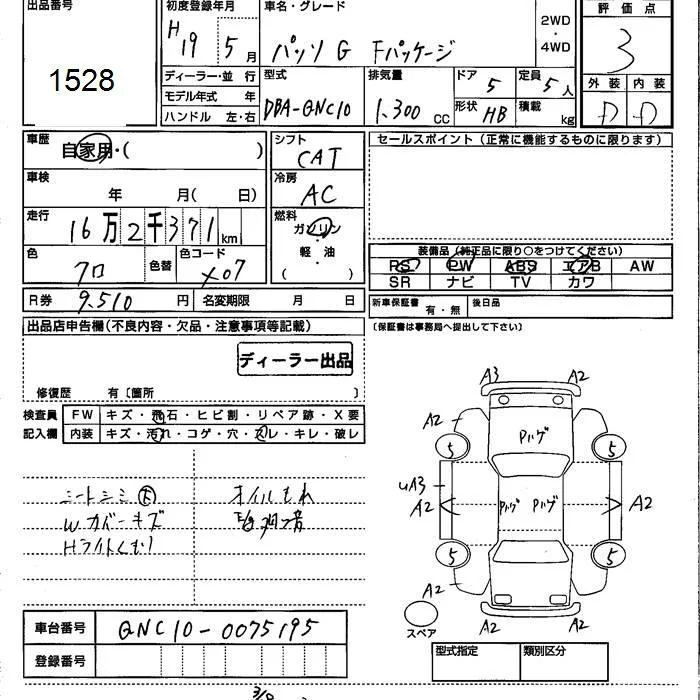 出品番号 初度登録年月 車名・グレード 評価点
1528 H19 5月 パッソ G Fパッケージ 2WD ・ 4WD 3
ディーラー・並行 型式 排気量 ドア 5 定員 5人 外装 内装
モデル年式 年 DBA-QNC10 1.300CC 形状 HB 積載 kg D D
ハンドル 左・右
車歴 自家用・( ) シフト CAT セールスポイント(正常に機能するものに限ります)
車検 年 月( 日) 冷房 AC
走行 16万2千371km 燃料 ガソリン
色 クロ 色替 色コード X07 軽・油 ( )
装備品(純正品に限り○をつけてください)
RS PW ABS エアB AW
SR ナビ TV カワ
R券 9.510円 名変期限 月 日 新車保証書 有・無 後日品
(保証書は事務局へ提出して下さい)
出品店申告欄(不良内容・欠品・注意事項等記載)
ディーラー出品
修復歴 有〔箇所 〕
検査員 FW キズ・飛石・ヒビ割・リペア跡・X要
記入欄 内装 キズ・汚れ・コゲ・穴・スレ・キレ・破レ
シートシミ大 オイルもれ
Wカバーキズ
Hライトくもり
A3 A2
A2 Pハゲ A2
5 5
uA3
A2 Pハゲ Pハゲ A2
5 5
A2 A2
スペア A2 A2
車台番号 QNC10-0075195
登録番号
型式指定 類別区分